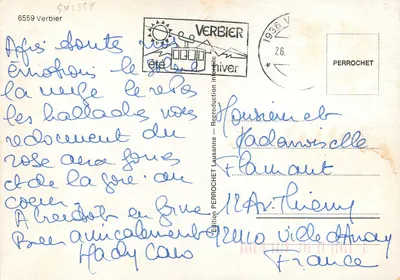 SUISSE
6559 Verbier
VERBIER
été hiver
1936 V
26.
PERROCHET
Edition PERROCHET Lausanne — Reproduction interdite
Après toutes vos
émotions le soleil
la neige le
les ballades vous
redonnent du
rose aux joues
et de la joie au
coeur.
A bientôt en
Bien amicalement
Monsieur et
Mademoiselle
Flamant
12 Av. Thierry
92410 Ville d'Avray
France